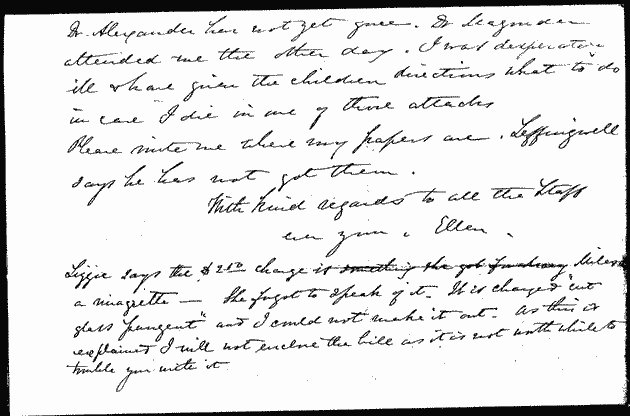 Dr. Alexander has not yet gone. Dr
attended me the other day. I was desperately
ill & have given the children directions what to do
in case I die in one of those attacks
Please write me where my papers are. Leffingwell
says he has not got them.
With kind regards to all the Staff
ever yours Ellen.
Lizzie says the $2.50 charge is something she got
a vinagrette — She forgot to speak of it. It is charged "cut
glass pungent" and I could not make it out. As this is
explained I will not enclose the bill as it is not worth while to
trouble you with it